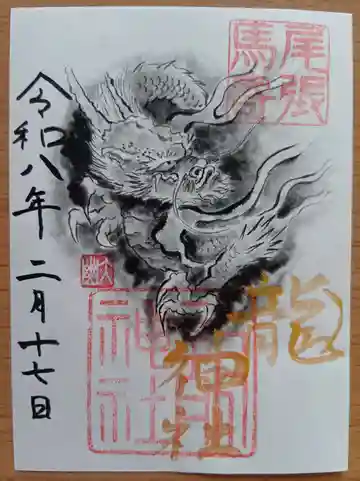 尾張
馬寄
龍神社
令和八年二月十七日